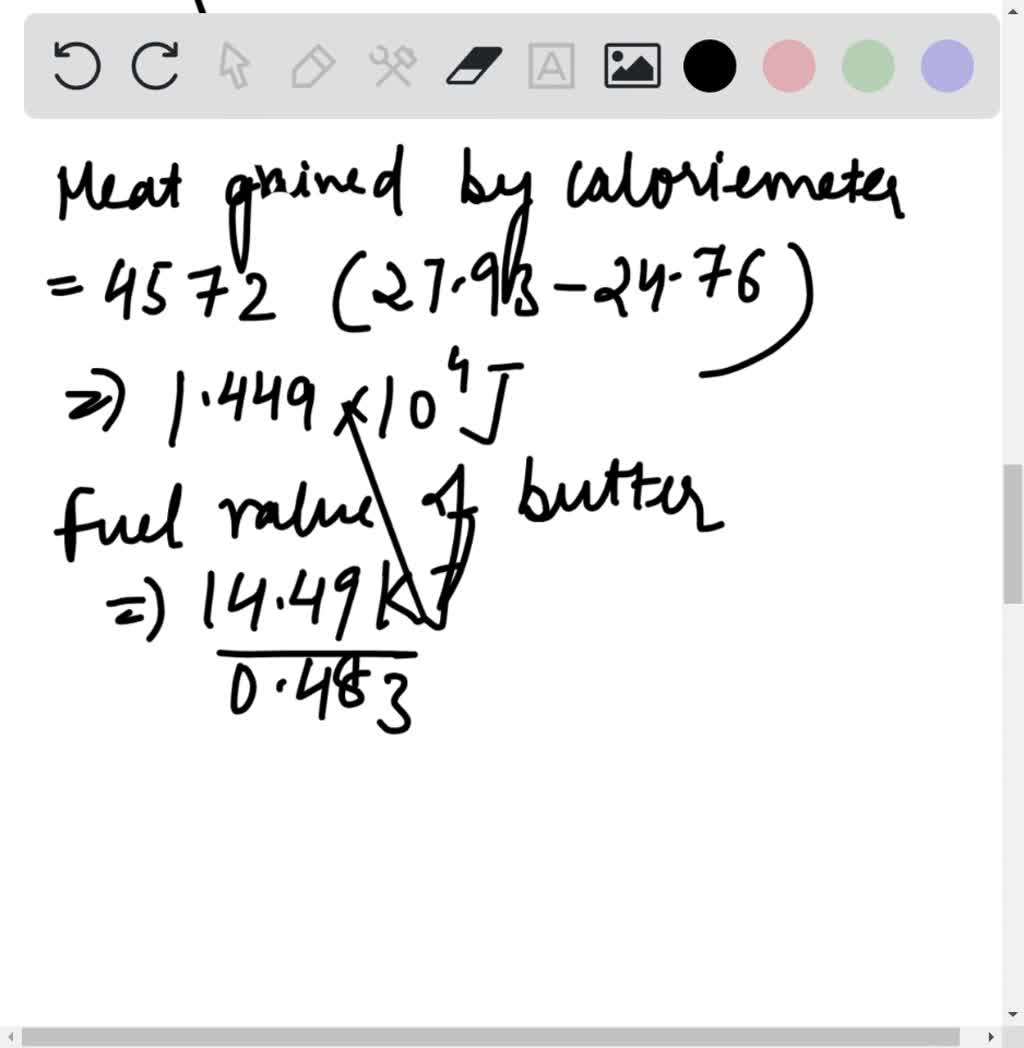 Heat gained by caloriemeter
= 4572 (27.93 - 24.76)
=) 1.449 x 10⁴ J
fuel value of butter
=) 14.49 KJ
0.483